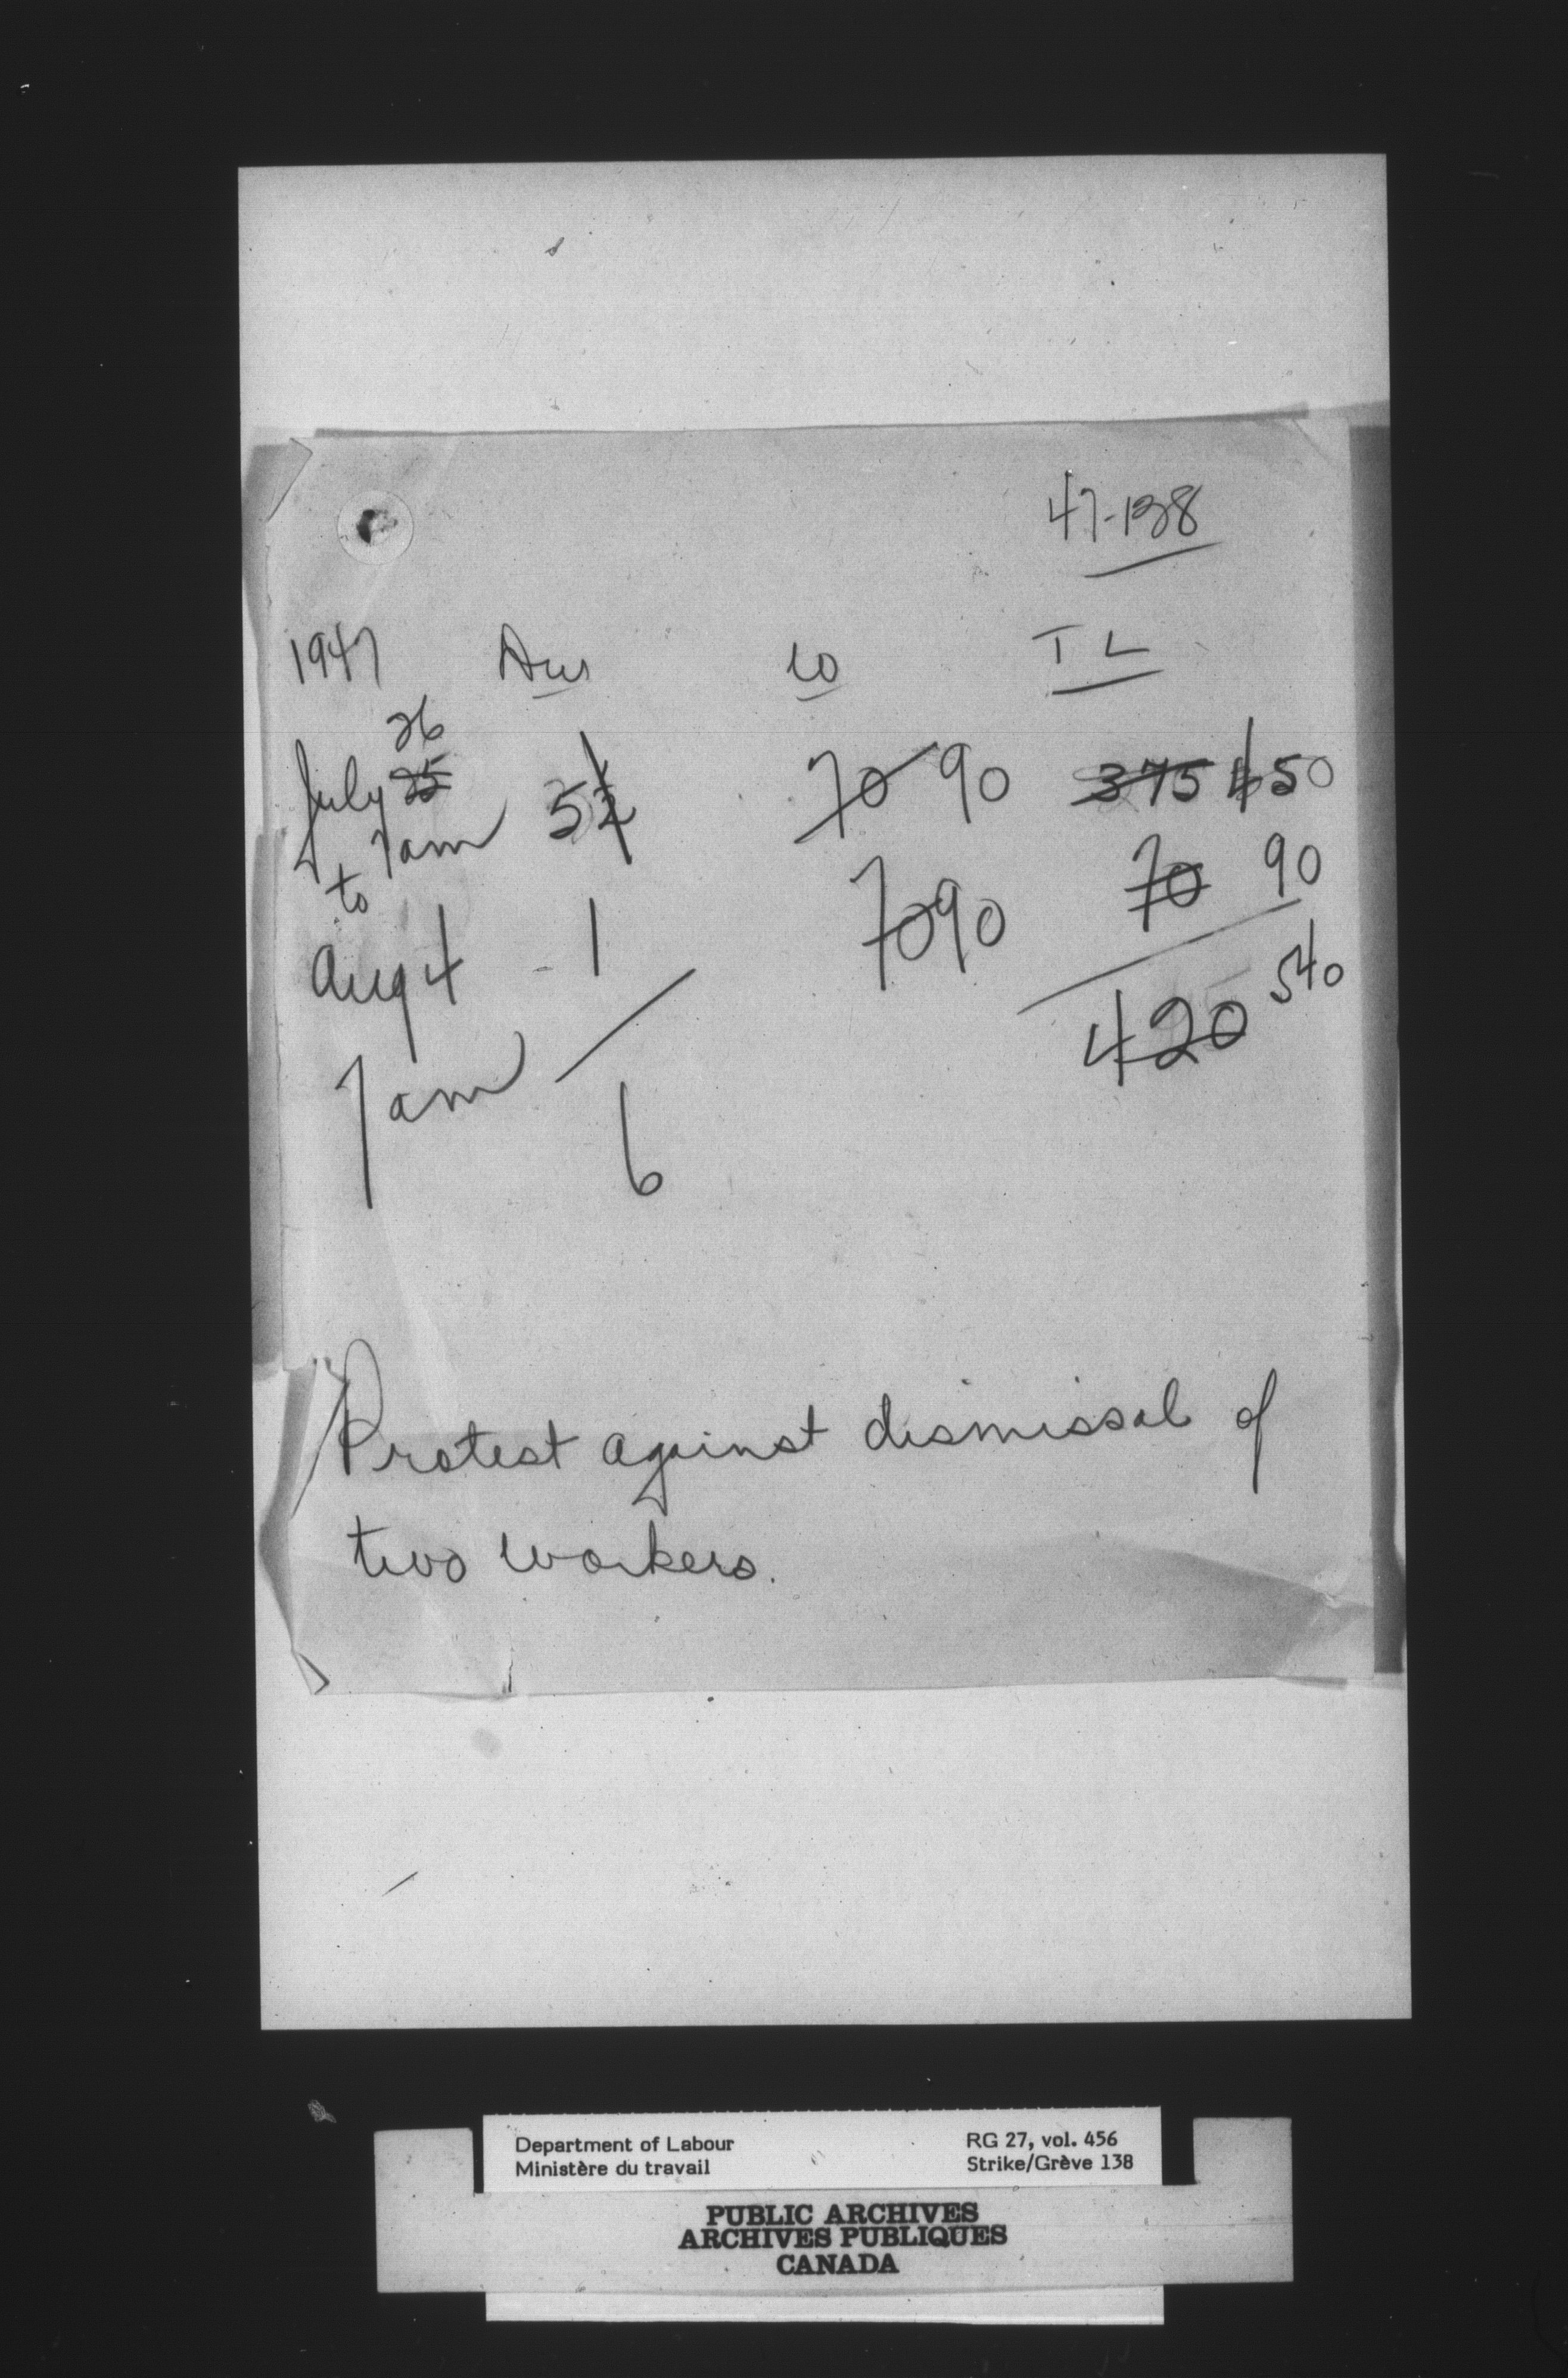 47-138
1947 Dur W T L
26
July 25 5 1/2 70 90 375 450
7am 70 90
to
Aug 4 1 70 90
540
420
7am
6
Protest against dismissal of
two workers.
Department of Labour RG 27, vol. 456
Ministère du travail Strike/Grève 138
PUBLIC ARCHIVES
ARCHIVES PUBLIQUES
CANADA